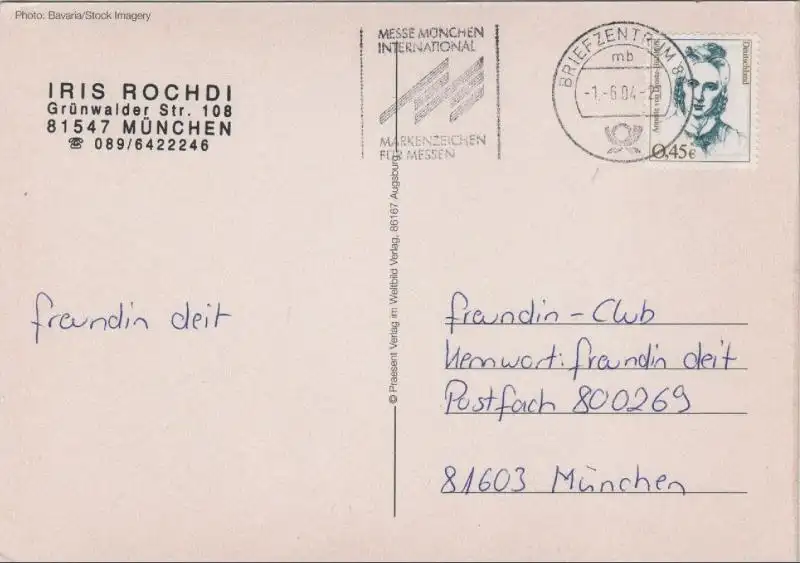 Photo: Bavaria/Stock Imagery
IRIS ROCHDI
Grünwalder Str. 108
81547 MÜNCHEN
☎ 089/6422246
MESSE MÜNCHEN
INTERNATIONAL
MARKENZEICHEN
FÜR MESSEN
BRIEFZENTRUM 8
mb
-1.-6.04-2
Deutschland
0,45€
© Praesent Verlag im Weltbild Verlag, 86167 Augsburg
freundin deit
freundin-Club
Kennwort: freundin deit
Postfach 800269
81603 München